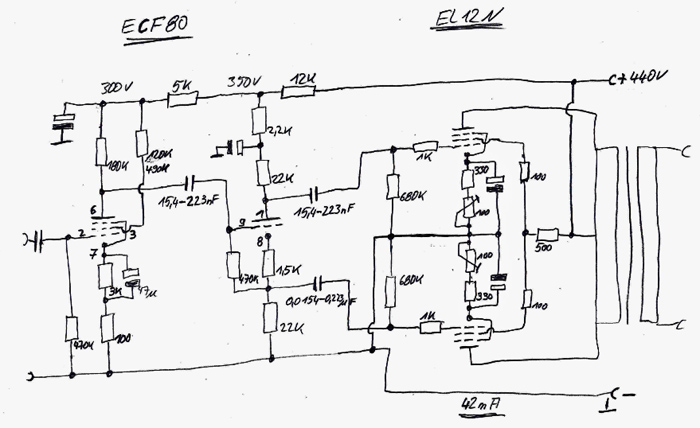 ECF80
EL12N
300V
5K
350V
12K
+440V
2,2K
180K
120K
490K
22K
1K
330
100
100
15,4-223nF
15,4-223nF
680K
6
2
3
7
1
9
8
500
100
3K
47µ
470K
1,5K
0,0154-0,223µF
680K
330
100
470K
100
22K
1K
42mA
-